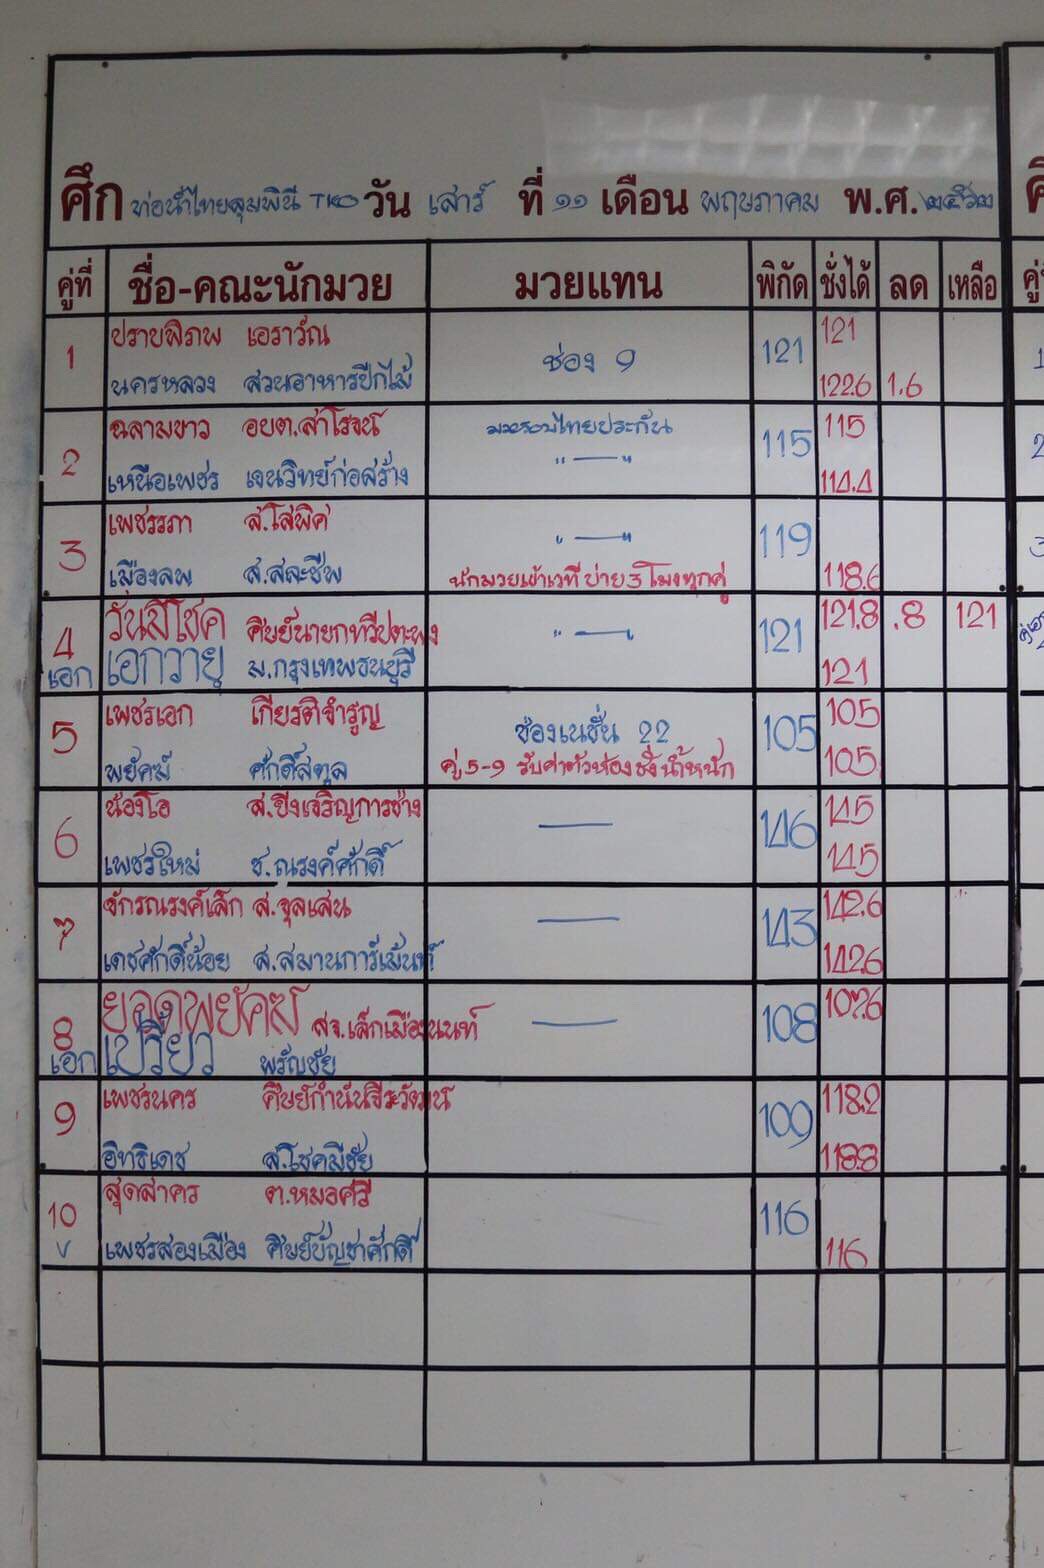 ศึก ท่อน้ำไทยลุมพินี TKO วัน เสาร์ ที่ ๑๑ เดือน พฤษภาคม พ.ศ. ๒๕๖๒
คู่ที่ ชื่อ-คณะนักมวย มวยแทน พิกัด ชั่งได้ ลด เหลือ
1 ปราบพิภพ เอราวัณ ช่อง 9 121 121
นครหลวง สวนอาหารปีกไม้ 122.6 1.6
2 ฉลามขาว อบต.สำโรงน์ มวยรอบไทยประกัน 115 115
เหนือเพชร เจนวิทย์ก่อสร้าง " — " 114.4
3 เพชรรภา ส.โสพิศ " — " 119
เมืองลพ ส.สละชีพ นักมวยเข้าเวที บ่าย 3 โมงทุกคู่ 118.6
4 วันมีโชค ศิษย์นายกทวีปตะพง " — " 121 121.8 .8 121
เอก เอกวายุ ม.กรุงเทพธนบุรี 121
5 เพชรเอก เกียรติจำรูญ ช่องเนชั่น 22 105 105
พยัคฆ์ ศักดิ์สตูล คู่ 5-9 รับค่าตัวห้องชั่งน้ำหนัก 105
6 น้องโอ ส.ยิ่งเจริญการช่าง — 146 145
เพชรใหม่ ช.ณรงค์ศักดิ์ 145
7 จักรณรงค์เล็ก ส.จุลเสน — 143 142.6
เดชศักดิ์น้อย ส.สมานการ์เม้นท์ 142.6
8 ยอดพยัคฆ์ สจ.เล็กเมืองนนท์ — 108 107.6
เอก เปรียว พรัญชัย
9 เพชรนคร ศิษย์กำนันธีระวัฒน์ 109 118.2
อิทธิเดช ส.โชคมีชัย 118.8
10 สุดสาคร ต.หมอศรี 116
v เพชรสองเมือง ศิษย์บัญชาศักดิ์ 116